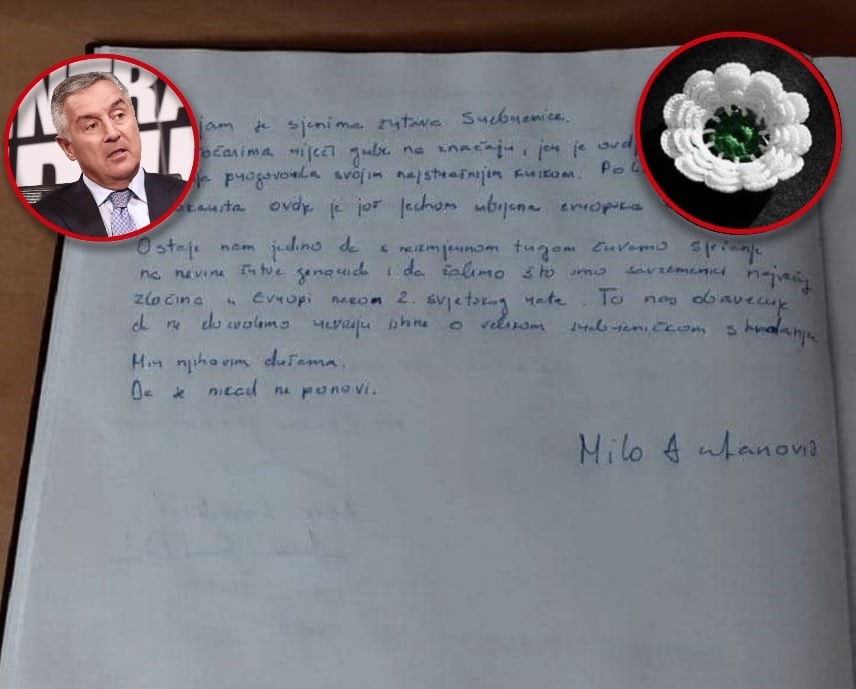 jam se sjenima žrtava Srebrenice.
riječi gube na značaju, jer je ovdje
progovorila svojim najstrašnijim krikom.
ovdje je još jednom ubijena evropska
Ostaje nam jedino da s neizmjernom tugom čuvamo sjećanje
na nevine žrtve genocida i da žalimo što smo savremenici najvećeg
zločina u Evropi nakon 2. svjetskog rata. To nas obavezuje
da ne dozvolimo reviziju istine o velikom srebreničkom stradanju
Mir njihovim dušama.
Da se nikad ne ponovi.
Milo